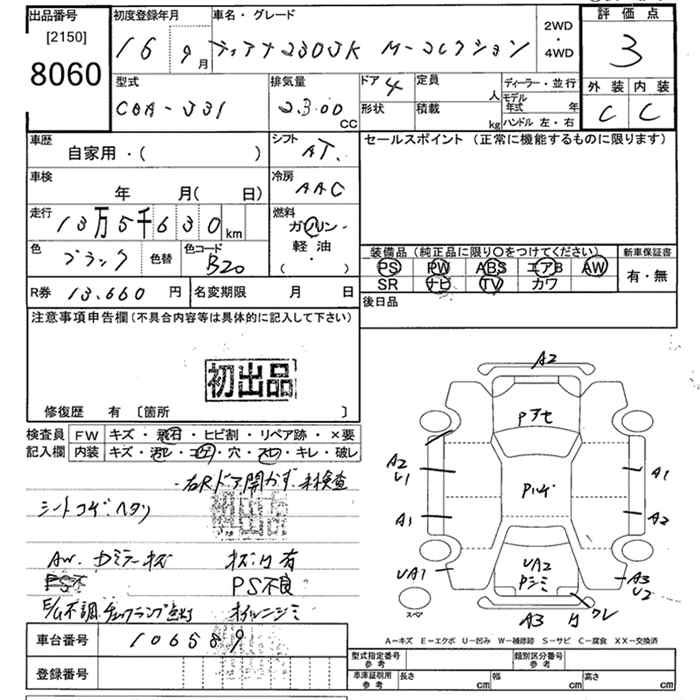 出品番号 初度登録年月 車名・グレード 2WD・4WD 評価点
[2150]
8060
16 9月 ティアナ230JK M-コレクション 3
型式 排気量 ドア 4 定員 人 ディーラー・並行 外装 内装
CBA-J31 2300cc 形状 積載 kg モデル年式 年
ハンドル 左・右 C C
車歴 自家用・( ) シフト AT. セールスポイント (正常に機能するものに限ります)
車検 年 月( 日) 冷房 AAC
走行 13万5千630km 燃料 ガソリン・軽油・( )
色 ブラック 色替 色コード B20
装備品(純正品に限り○をつけてください) 新車保証書
PS PW ABS エアB AW 有・無
SR ナビ TV カワ
R券 13,660円 名変期限 月 日 後日品
注意事項申告欄(不具合内容等は具体的に記入して下さい)
初出品
修復歴 有 [箇所 ]
検査員記入欄 FW キズ・飛石・ヒビ割・リペア跡・×要
内装 キズ・汚レ・コゲ・穴・スレ・キレ・破レ
右Rドア開かず 未検査
初出品
シートコゲ・ヘタリ
AW. ガリキズ キズ凹有
PS不良
E/G不調 チェックランプ点灯 オイルニジミ
車台番号 106589
登録番号
A2
Pアセ
A2 U1
A1
Pハゲ
A1
A2
UA1
UA2
Pシミ
A3 U2
スペア
A3 凹 ワレ
A-キズ E-エクボ U-凹み W-補修跡 S-サビ C-腐食 XX-交換済
型式指定番号 参考 類別区分番号 参考
車庫証明用 参考 長さ cm 幅 cm 高さ cm